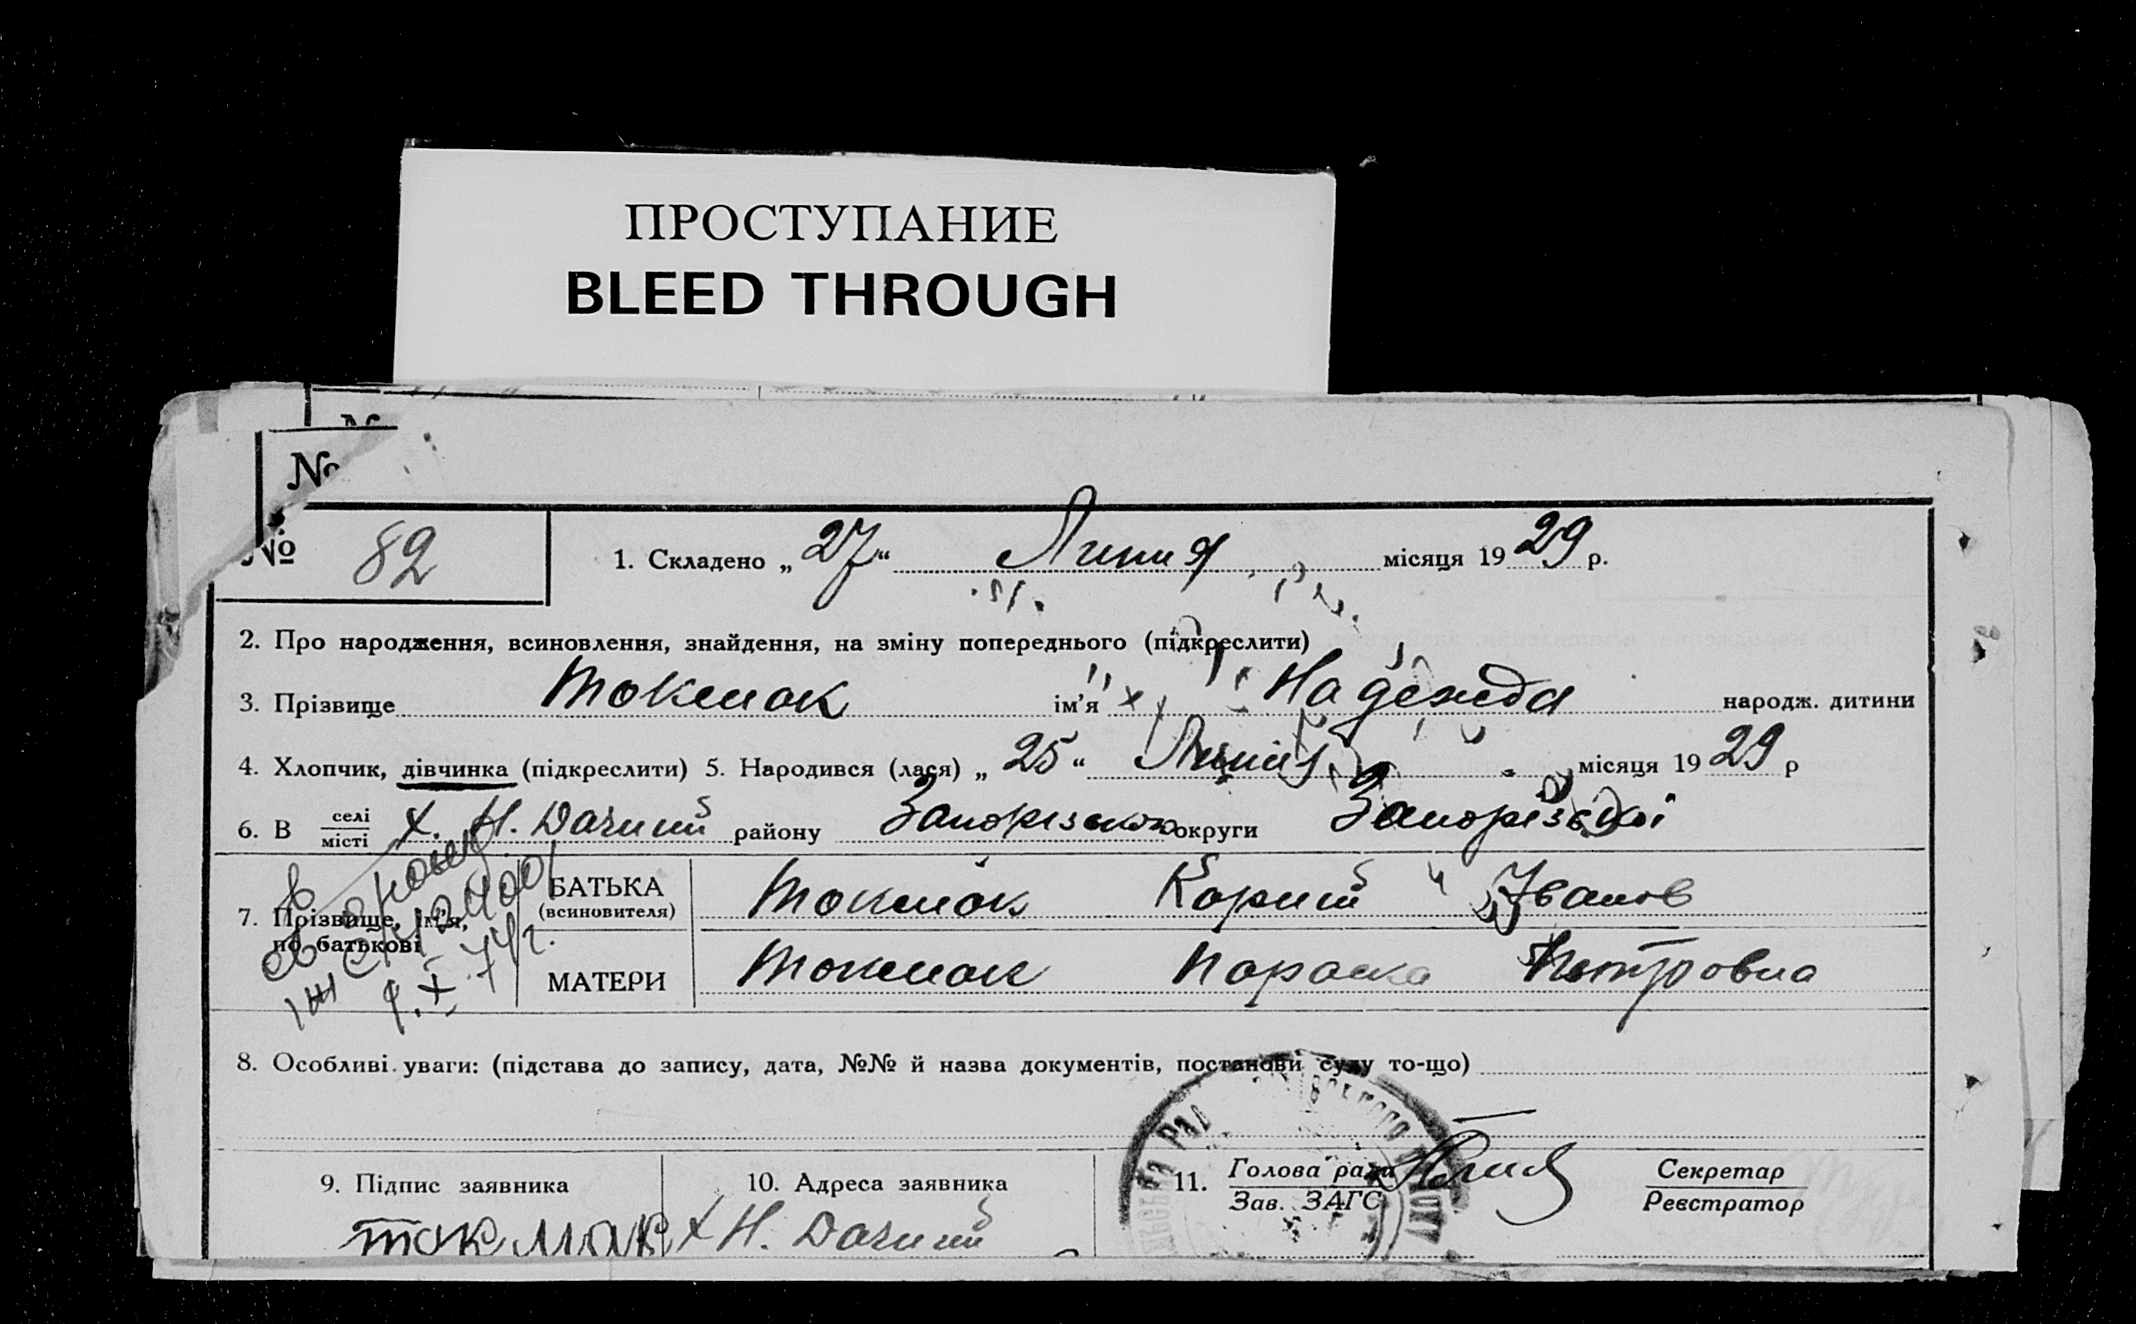 ПРОСТУПАНИЕ
BLEED THROUGH
№
№
№ 82
1. Складено „27“ Липня місяця 1929 р.
2. Про народження, всиновлення, знайдення, на зміну попереднього (підкреслити)
3. Прізвище Токмак ім’я Надежда народж. дитини
4. Хлопчик, дівчинка (підкреслити) 5. Народився (лася) „25“ Липня місяця 1929 р
6. В селі/місті Х. Н. Дачний району Запорізького округи Запорізької
7. Прізвище, ім’я, по батькові
БАТЬКА (всиновителя) Токмак Корній Іванов
МАТЕРИ Токмак Параска Петровна
8. Особливі уваги: (підстава до запису, дата, №№ й назва документів, постанови суду то-що)
9. Підпис заявника 10. Адреса заявника 11. Голова ради/Зав. ЗАГС Секретар/Реєстратор
токмак Х Н. Дачний